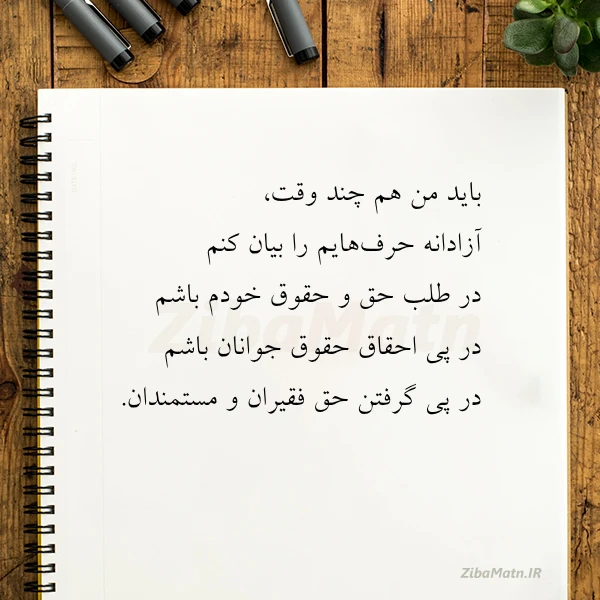 باید من هم چند وقت،
آزادانه حرف‌هایم را بیان کنم
در طلب حق و حقوق خودم باشم
در پی احقاق حقوق جوانان باشم
در پی گرفتن حق فقیران و مستمندان.
ZibaMatn
ZibaMatn.IR